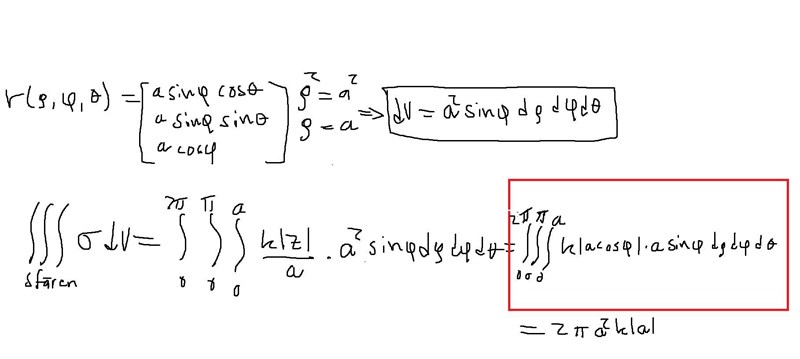 r(ρ, φ, θ) = [a sinφ cosθ
a sinφ sinθ
a cosφ]
ρ² = a²
ρ = a ⇒ dV = a² sinφ dρ dφ dθ
∭ σ dV = ∫₀^2π ∫₀^π ∫₀^a k|z|/a · a² sinφ dρ dφ dθ = ∫₀^2π ∫₀^π ∫₀^a k|a cosφ| · a sinφ dρ dφ dθ
sfären
= 2πa²k|a|